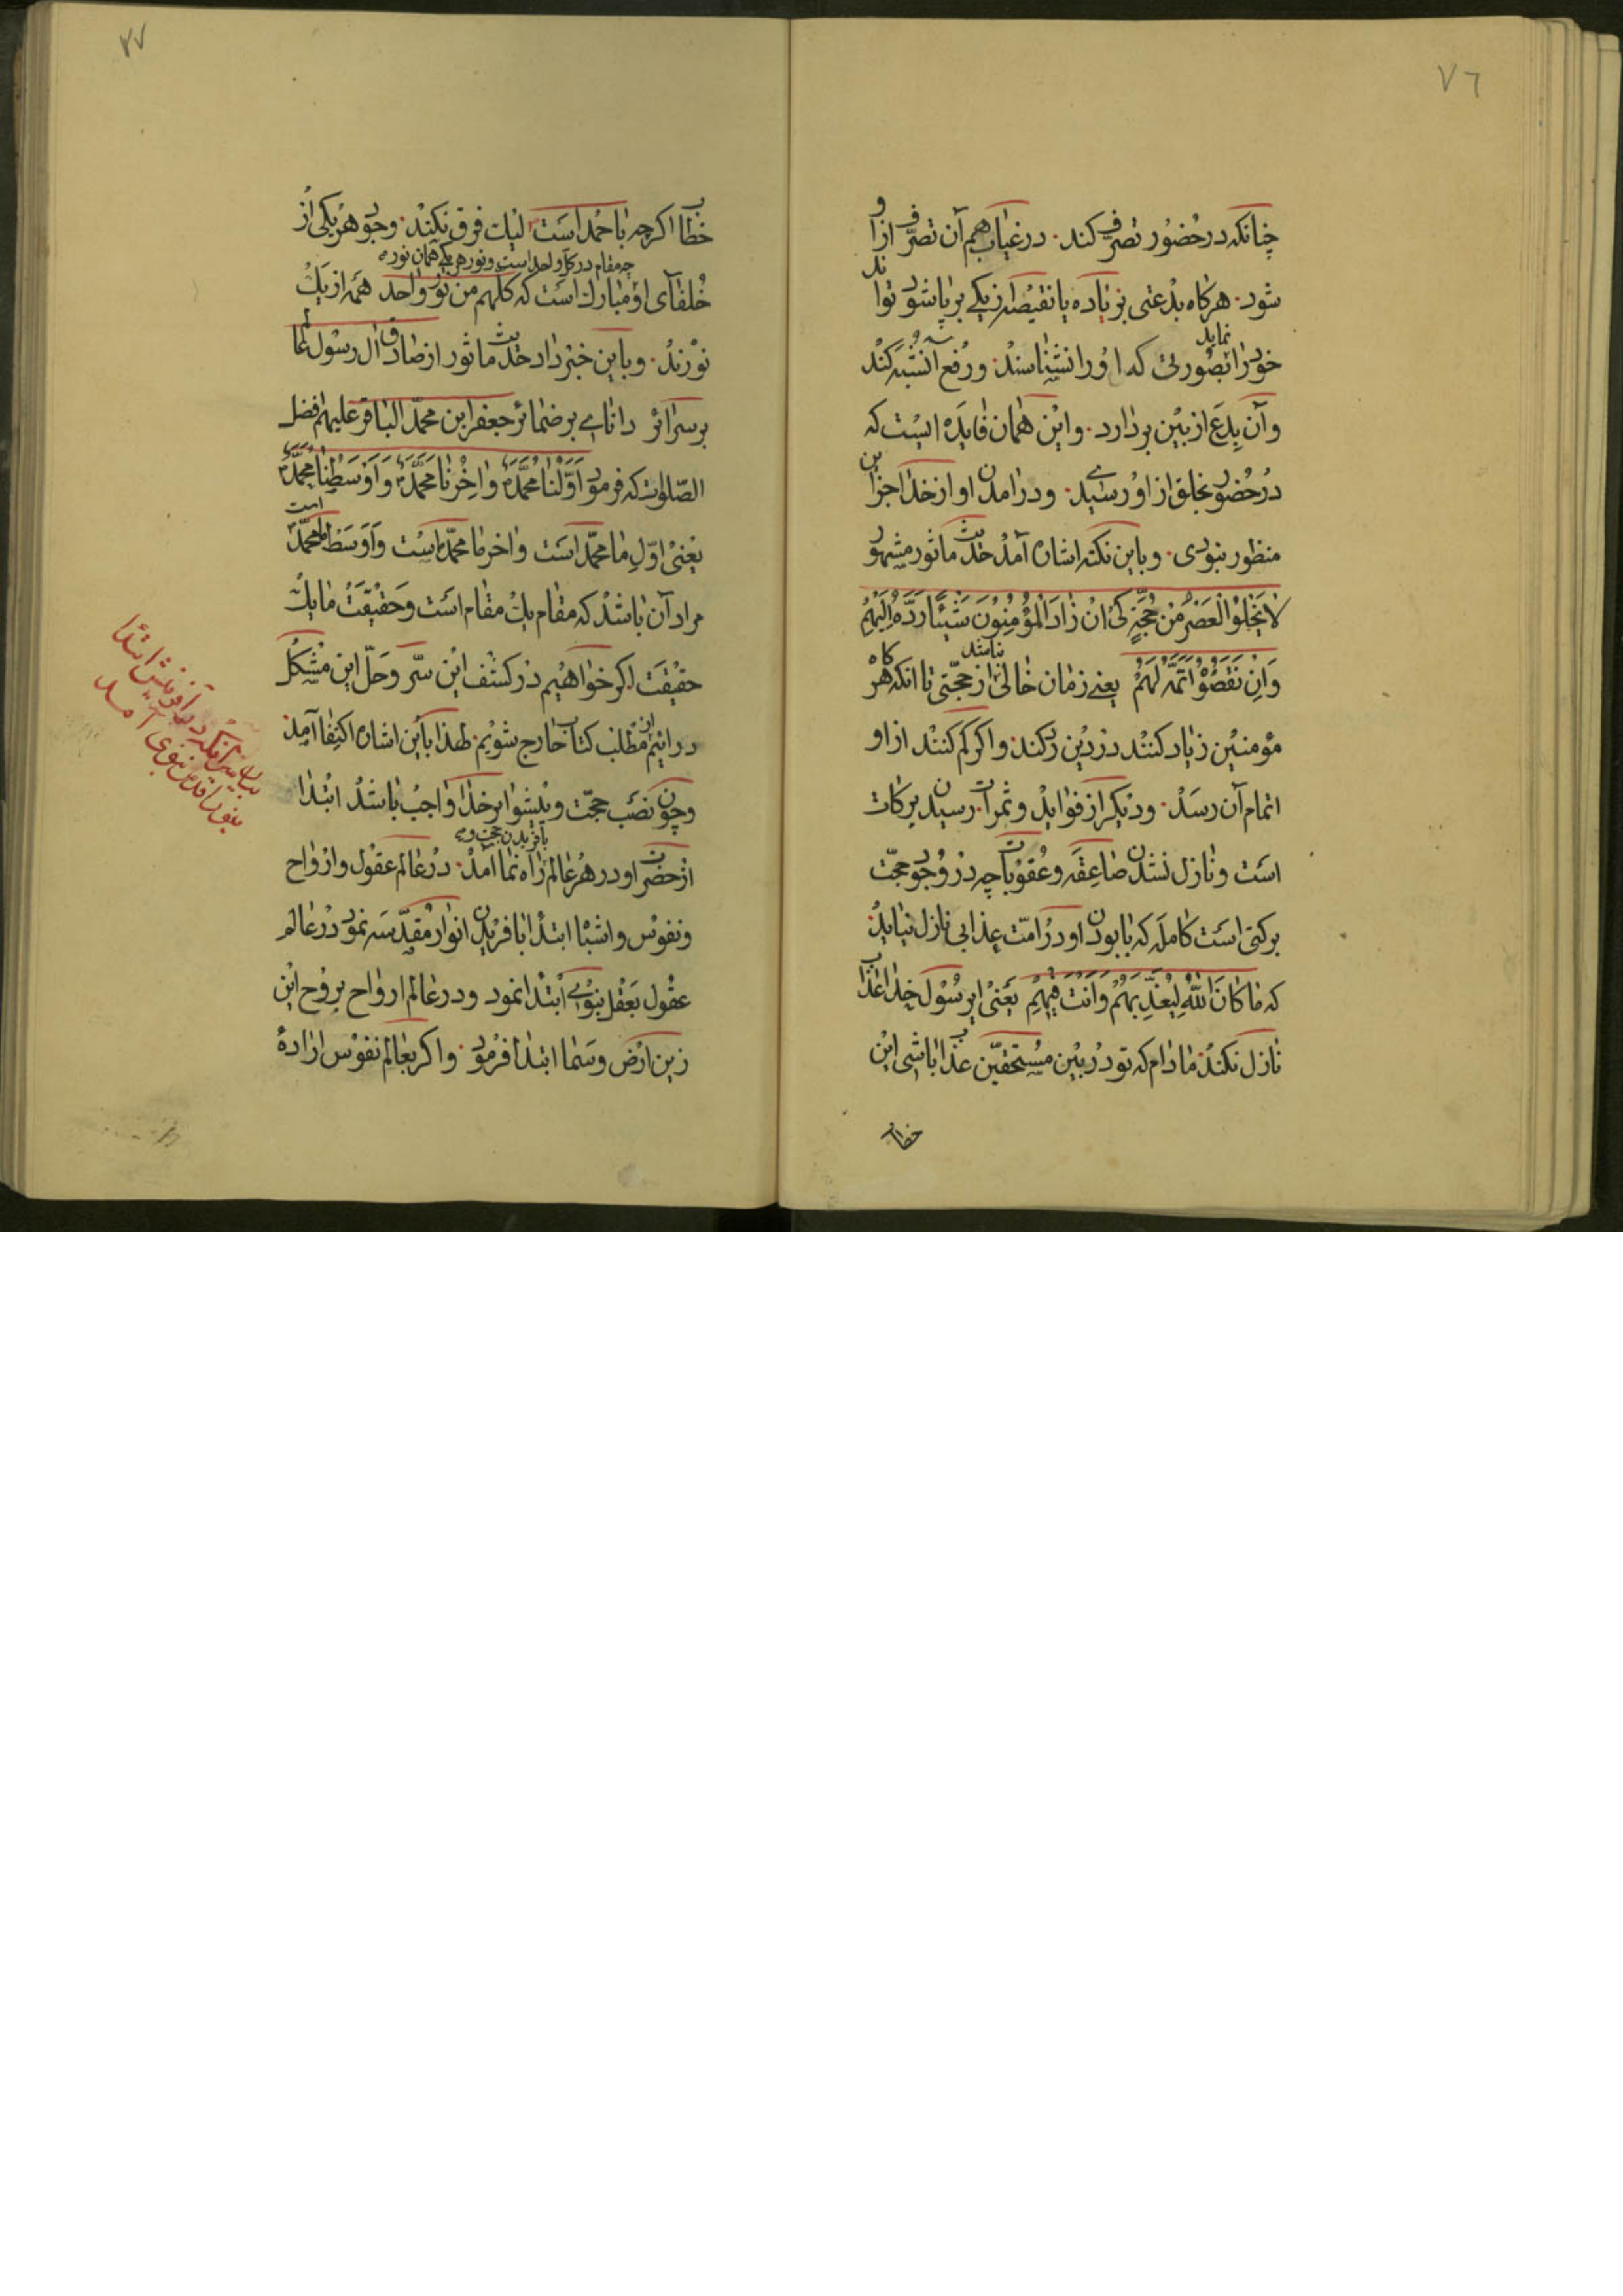 ٧٦
چنانکه در حضور تصرف کند. در غیاب هم آن تصرف از او
شود. هرکاه بدعتی بزیاده یا نقیصه از یکی بر پا شود تواند
خود را نماید بصورتی که او را نشناسند. و رفع آن شبه کند
و آن بدع از بین بردارد. و این همان فایده ایست که
در حضور بخلق از او رسیدی. و در آمدن او از خدا جز این
منظور نبودی. و باین نکته اشاره آمد حدیث ماثور مشهور
لا یخلو العصر من حجة کی ان زاد المؤمنون شیئا رده الیهم
وان نقصوا اتمه لهم یعنی زمان خالی نباشد از حجتی تا انکه هرکاه
مؤمنین زیاد کنند در دین رد کند. و اکر کم کنند از او
اتمام آن رسد. و دیکر از فواید و ثمرات. رسیدن برکات
است و نازل نشدن صاعقه و عقوبات چه در وجود حجت
برکتی است کامله که با بودن او در امت عذابی نازل نیاید.
که ما کان الله لیعذبهم وانت فیهم یعنی ای رسول خدا عذاب
نازل نکند. مادام که تو در بین مستحقین عذاب باشی این
خطاب
٧٧
خطاب اکرچه با احمد است لیک فرق نکند. وجود هر یکی از
چه مقام در کل واحد است و نور هر یکی همان نوره
خلفای او مبارک است که کلهم من نور واحد همه از یک
نورند. و باین خبر داد حدیث ماثور از صادق آل رسول دانا
بر سرائر دانای بر ضمائر جعفر ابن محمد الباقر علیهم افضل
الصلوات که فرمود اولنا محمد واخرنا محمد واوسطنا محمد
یعنی اول ما محمد است و اخر ما محمد است و اوسط ما محمد است
مراد آن باشد که مقام یک مقام است و حقیقت ما یک
حقیقت اکر خواهیم در کشف این سر و حل این مشکل
در ائیم از مطلب کتاب خارج شویم. لهذا باین اشاره اکتفا آمد.
و چون نصب حجت و پیشوا بر خدا واجب باشد ابتدا
از حضرت او در هر عالم بافریدن حجت و راه نما آمد. در عالم عقول و ارواح
و نفوس و اشباح ابتدا بافریدن انوار مقدسه نمود در عالم
عقول بعقل نبوی ابتدا نمود و در عالم ارواح بروح این
زین ارض و سما ابتدا فرمود. و اکر بعالم نفوس اراده
بیان سر آنکه در آفرینش ابتدا
بنور اقدس نبوی آمد